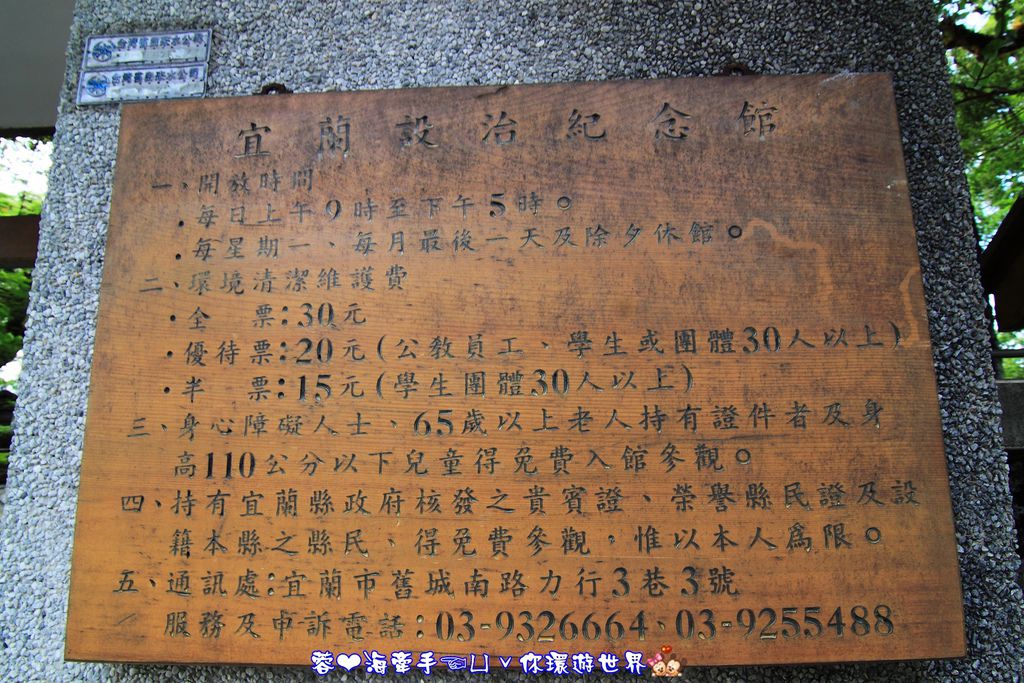 台灣自來水公司
台灣自來水公司
宜蘭設治紀念館
一、開放時間
．每日上午9時至下午5時。
．每星期一、每月最後一天及除夕休館。
二、環境清潔維護費
．全 票：30元
．優待票：20元(公教員工、學生或團體30人以上)
．半 票：15元(學生團體30人以上)
三、身心障礙人士、65歲以上老人持有證件者及身
高110公分以下兒童得免費入館參觀。
四、持有宜蘭縣政府核發之貴賓證、榮譽縣民證及設
籍本縣之縣民、得免費參觀，惟以本人為限。
五、通訊處：宜蘭市舊城南路力行3巷3號
服務及申訴電話：03-9326664、03-9255488
蓉❤海蜇手☜凵ˇ你環遊世界